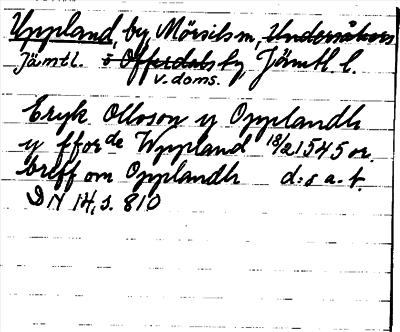 Uppland, by, Mörsils sn, Undersåkers
Jämtl. o Offerdals tg, Jämtl. l.
v. doms.
Eryk Olloson y Opplandh
y fforde Wppland 18/2 1545 or.
breff om Opplandh d:s a. t.
DN 14, s. 810